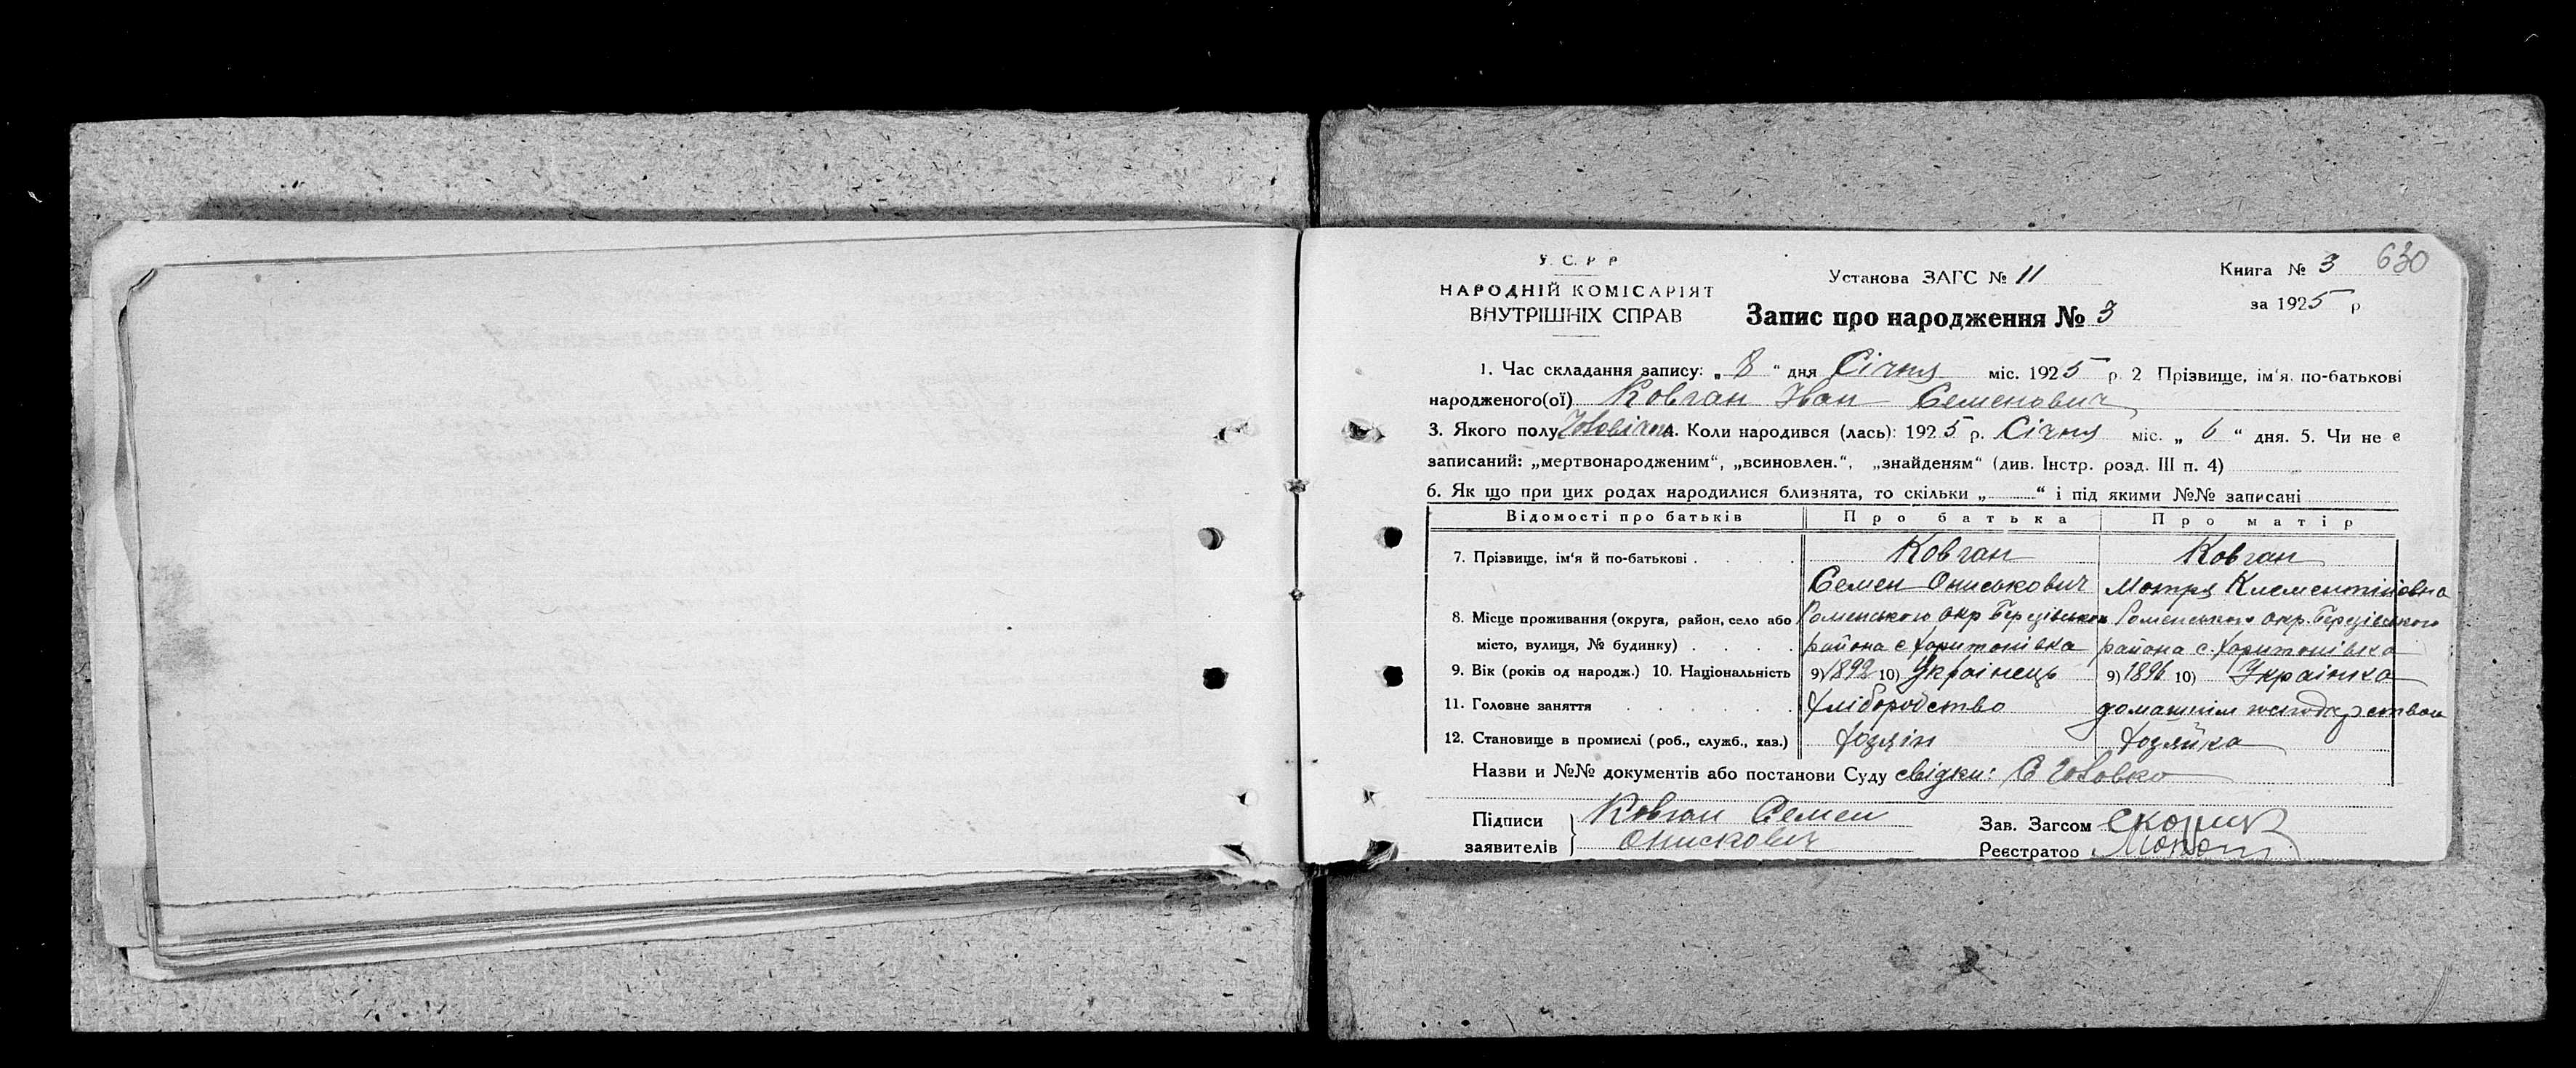 630
У. С. Р. Р
НАРОДНІЙ КОМІСАРІЯТ
ВНУТРІШНІХ СПРАВ
Установа ЗАГС № 11
Запис про народження № 3
Книга № 3
за 1925 р
1. Час складання запису: „ 8 “ дня Січня міс. 1925 р. 2 Прізвище, ім‘я, по-батькові
народженого(ої) Ковган Іван Семенович
3. Якого полу 4. Коли народився (лась): 1925 р. Січня міс. „ 6 “ дня. 5. Чи не е
записаний: „мертвонародженим“, „всиновлен.“, „знайденям“ (див. Інстр. розд. III п. 4)
6. Як що при цих родах народилися близнята, то скільки „ “ і під якими №№ записані
Відомості про батьків Про батька Про матір
7. Прізвище, ім‘я й по-батькові . . . . Ковган Ковган
СеменОниськович Мотря Клементіївна
8. Місце проживання (округа, район, село або Роменського окр Березівського Роменського окр. Березівського
місто, вулиця, № будинку) . . . . района с Харитонівка района с. Харитонівка
9. Вік (років од народж.) 10. Національність 9) 1892 10) Українець 9) 1896 10) Українка
11. Головне заняття . . . . . . хліборобство домашнім господарством
12. Становище в промислі (роб., служб., хаз.) хозяін хозяйка
Назви и №№ документів або постанови Суду свідки: С
Підписи заявителів } Ковган Семен
Онискович
Зав. Загсом
Реєстратор